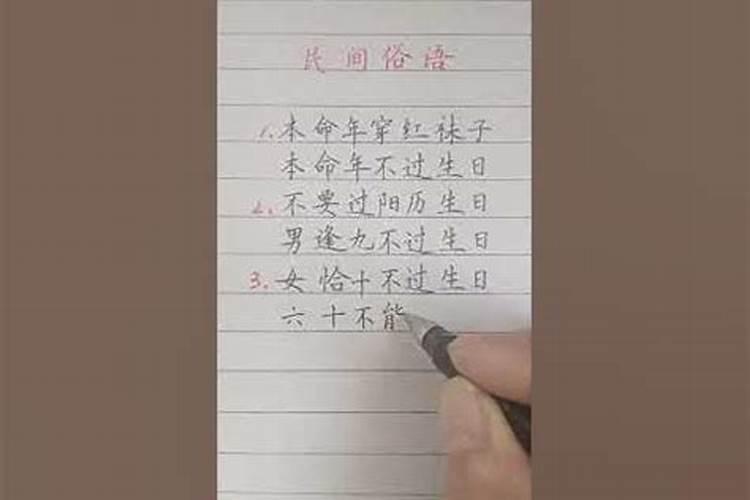 民间俗语
1.本命年穿红袜子
本命年不过生日
2.不要过阳历生日
男逢九不过生日
3.女恰十不过生日
六十不能